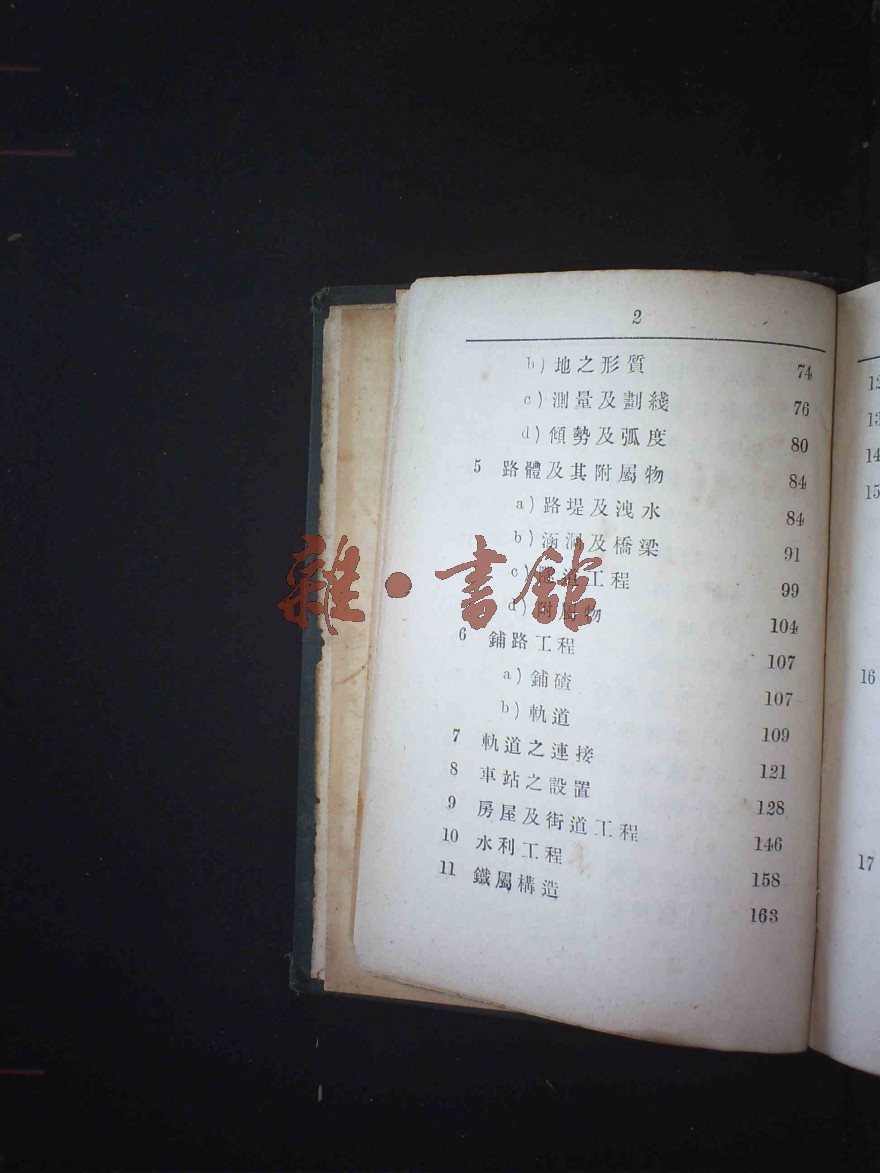 2
b) 地之形質 74
c) 測量及劃綫 76
d) 傾勢及弧度 80
5 路體及其附屬物 84
a) 路堤及洩水 84
b) 涵洞及橋梁 91
c) 道工程 99
d) 附屬物 104
6 鋪路工程 107
a) 鋪碴 107
b) 軌道 109
7 軌道之連接 121
8 車站之設置 128
9 房屋及街道工程 146
10 水利工程 158
11 鐵屬構造 163
雜·書館
12
13
14
15
16
17